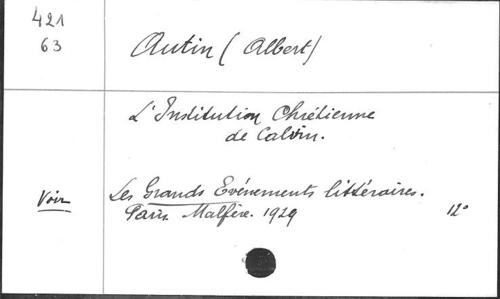 421
63
Autin (Albert)
L'Institution Chrétienne
de Calvin.
Voir
Les Grands Evénements littéraires.
Paris. Malfère. 1929 12°